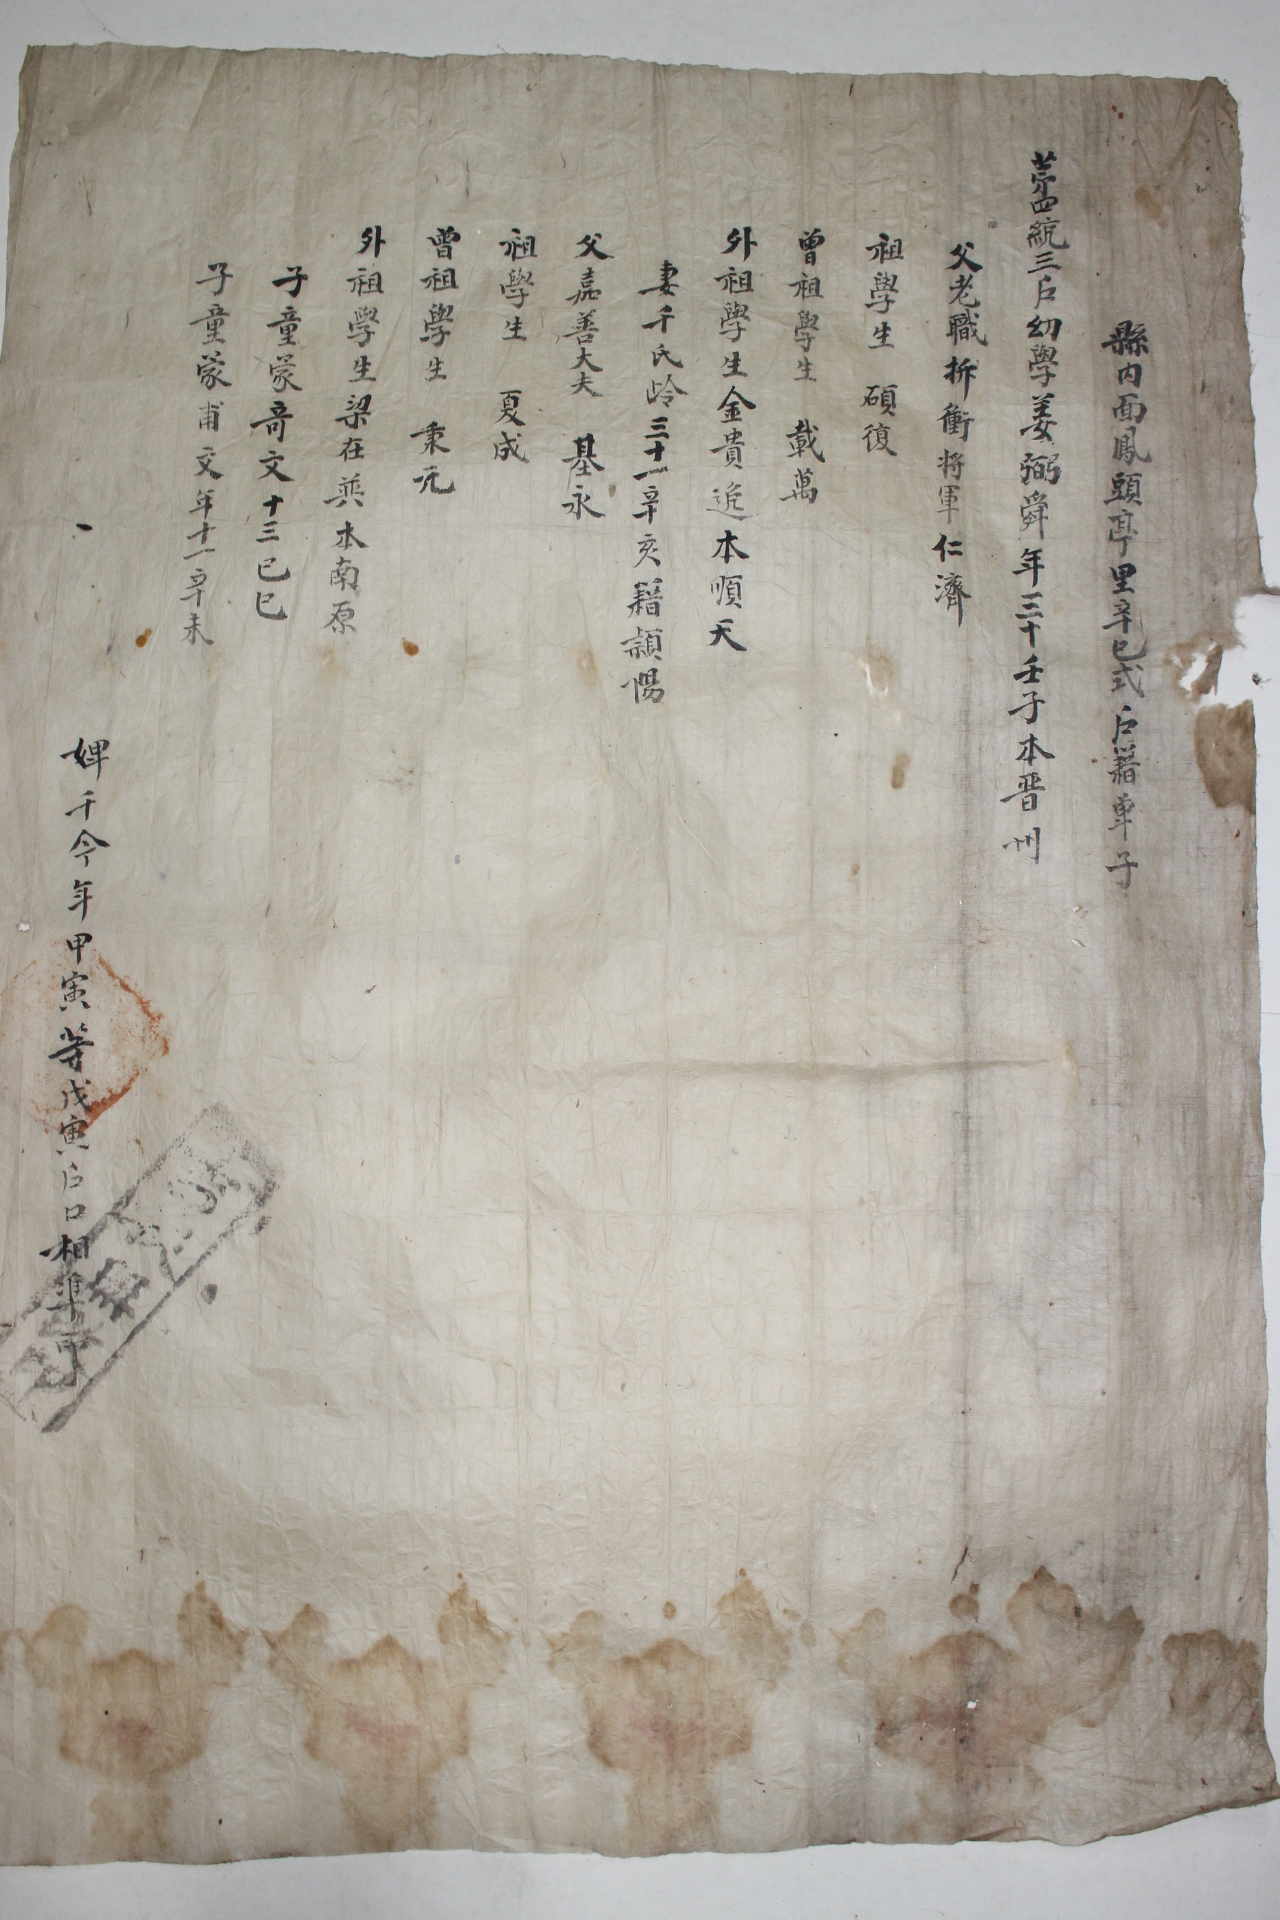 縣內面鳳頭亭里辛巳式戶籍單子
第四統三戶幼學姜弼舜年三十壬子本晋州
父老職折衝將軍仁濟
祖學生 碩復
曾祖學生 載萬
外祖學生金貴追本順天
妻千氏齡三十一辛亥籍穎陽
父嘉善大夫 基永
祖學生 夏成
曾祖學生 秉元
外祖學生梁在英本南原
子童蒙奇文十三己巳
子童蒙甫文年十一辛未
婢千今年甲寅等戊寅戶口相準印